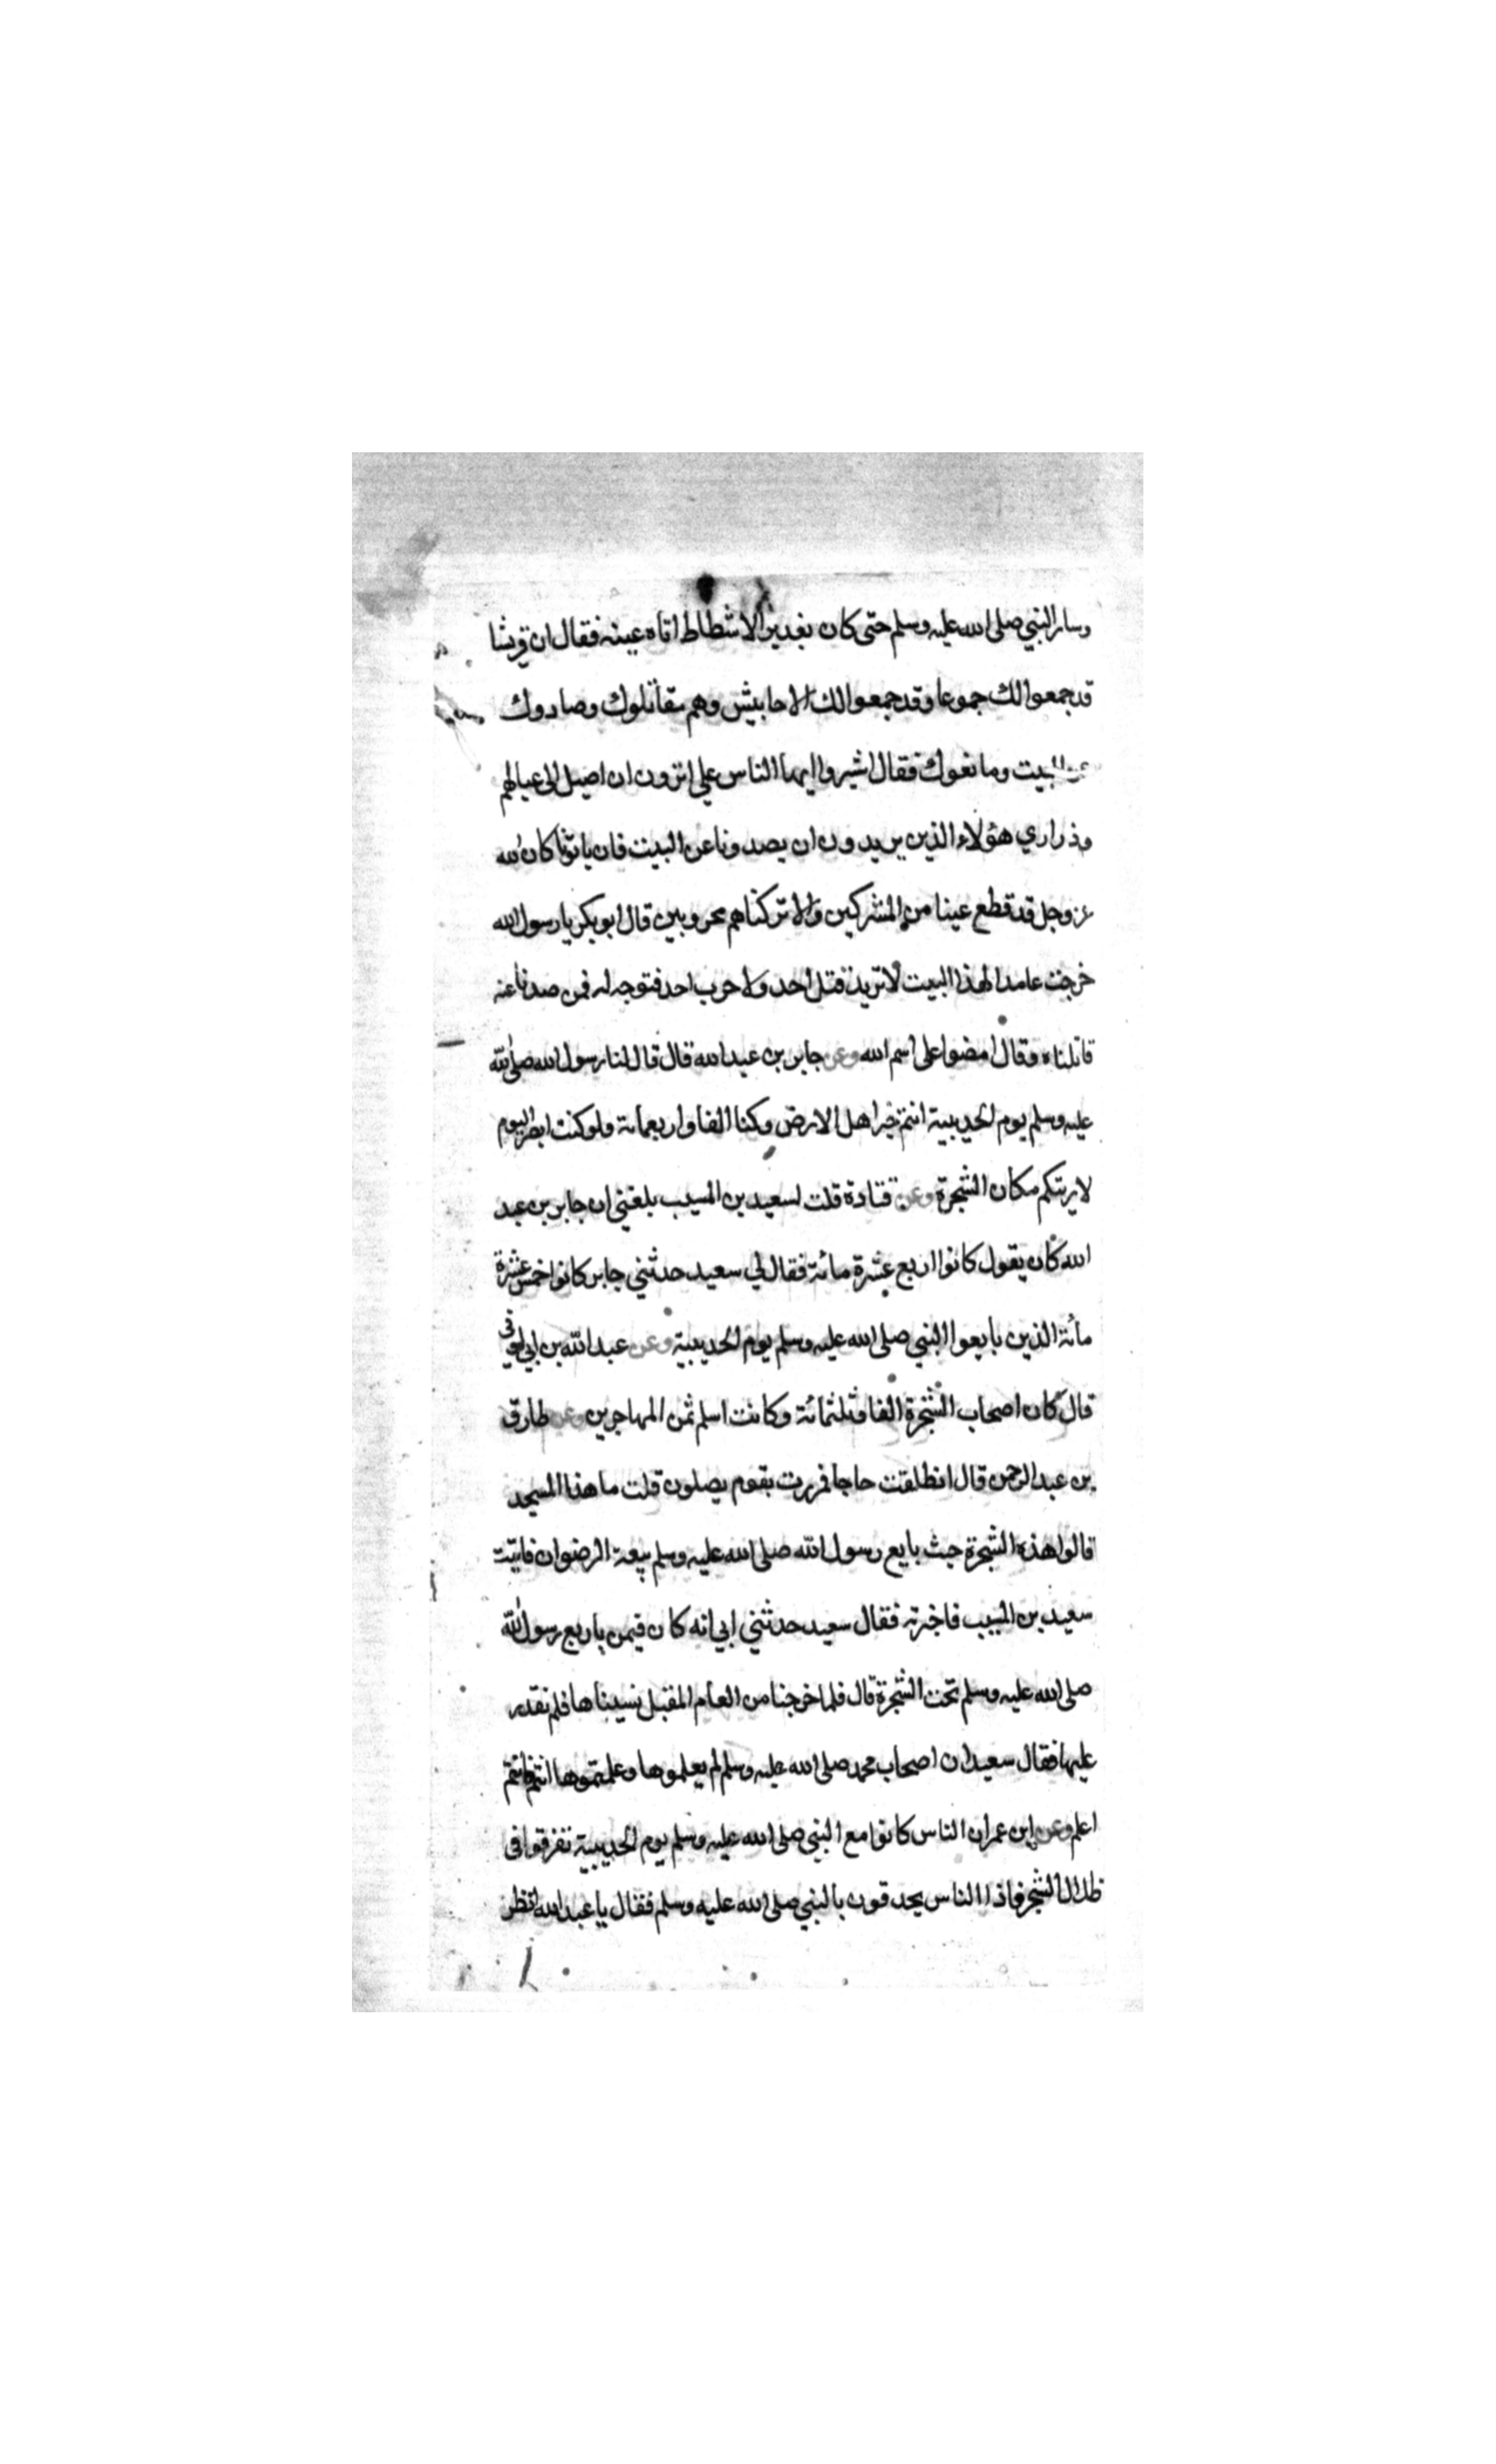 وسار النبي صلى الله عليه وسلم حتى كان بغدير الاشطاط اتاه عينه فقال ان قريشا
قد جمعوا لك جموعا وقد جمعوا لك الاحابيش وهم مقاتلوك وصادوك
عن البيت ومانعوك فقال اشيروا ايها الناس علي اترون ان اميل الى عيالهم
وذراري هؤلاء الذين يريدون ان يصدونا عن البيت فان ياتونا كان الله
عز وجل قد قطع عينا من المشركين والا تركناهم محروبين قال ابو بكر يا رسول الله
خرجت عامدا لهذا البيت لا تريد قتل احد ولا حرب احد فتوجه له فمن صدنا عنه
قاتلناه وقال امضوا على اسم الله وعن جابر بن عبد الله قال قال لنا رسول الله صلى الله
عليه وسلم يوم الحديبية انتم خير اهل الارض وكنا الفا واربعمائة ولو كنت ابصر اليوم
لاريتكم مكان الشجرة وعن قتادة قلت لسعيد بن المسيب بلغني ان جابر بن عبد
الله كان يقول كانوا اربع عشرة مائة فقال لي سعيد حدثني جابر كانوا خمس عشرة
مائة الذين بايعوا النبي صلى الله عليه وسلم يوم الحديبية وعن عبد الله بن ابي اوفى
قال كان اصحاب الشجرة الفا وثلثمائة وكانت اسلم ثمن المهاجرين وعن طارق
بن عبد الرحمن قال انطلقت حاجا فمررت بقوم يصلون قلت ما هذا المسجد
قالوا هذه الشجرة حيث بايع رسول الله صلى الله عليه وسلم بيعة الرضوان فاتيت
سعيد بن المسيب فاخبرته فقال سعيد حدثني ابي انه كان فيمن بايع رسول الله
صلى الله عليه وسلم تحت الشجرة قال فلما خرجنا من العام المقبل نسيناها فلم نقدر
عليها فقال سعيد ان اصحاب محمد صلى الله عليه وسلم لم يعلموها وعلمتموها انتم فانتم
اعلم وعن ابن عمر ان الناس كانوا مع النبي صلى الله عليه وسلم يوم الحديبية تفرقوا في
ظلال الشجر فاذا الناس يحدقون بالنبي صلى الله عليه وسلم فقال يا عبد الله انظر